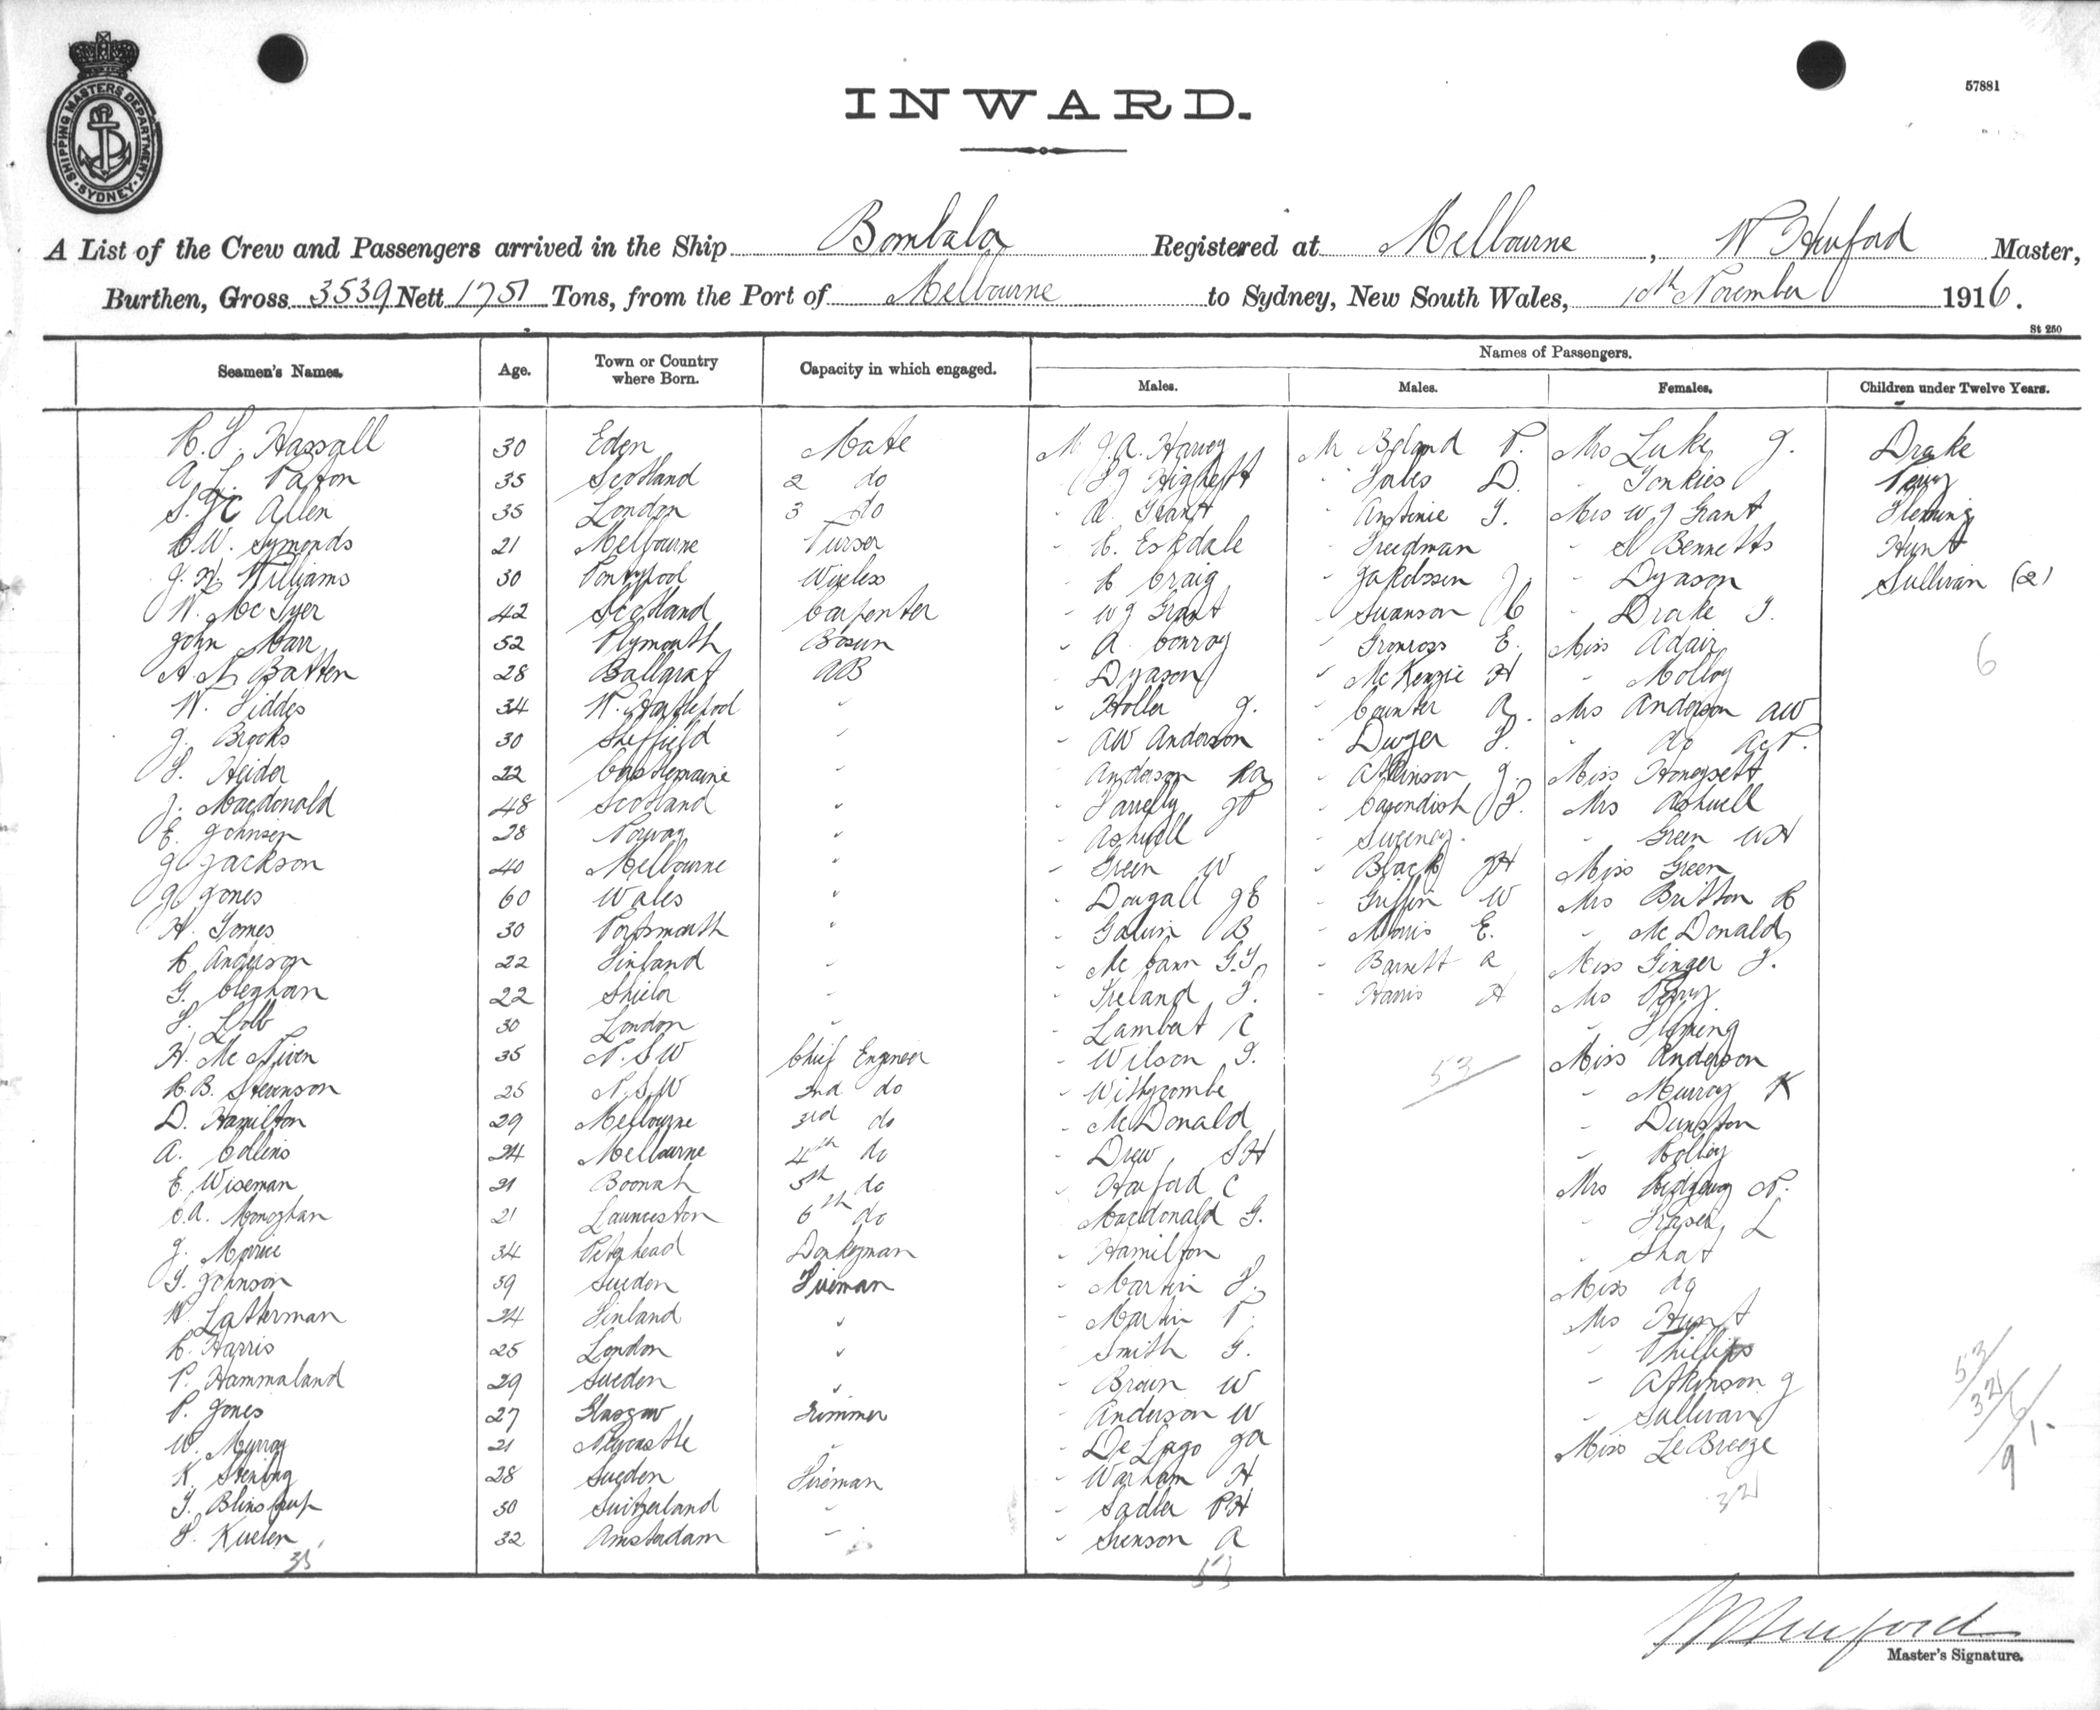 SHIPPING MASTERS DEPARTMENT · SYDNEY ·
57881
INWARD.
A List of the Crew and Passengers arrived in the Ship Bombala Registered at Melbourne, W Hurford Master,
Burthen, Gross 3539 Nett 1751 Tons, from the Port of Melbourne to Sydney, New South Wales, 10th November 1916.
St 250
Names of Passengers.
Seamen's Names. Age. Town or Country where Born. Capacity in which engaged. Males. Males. Females. Children under Twelve Years.
Hassall 30 Eden Mate M J.A. Harvey M Boland P. Mrs Luke J. Drake
A. L. Paton 35 Scotland 2 do Highett D. Perry
Allen 35 London 3 do - Grant - Antonie Mrs W J Grant Fleming
Symonds 21 Melbourne Purser - Eskdale - Freedman - Bennetts Hunt
Williams 30 Pontypool Wireless - R Craig - - Dyason Sullivan (2)
W. McIyer 42 Scotland Carpenter - W J Grant - Swanson C - Drake
John Carr 52 Plymouth Bosun - A. Conroy - E. Miss Adair 6
Batten 28 Ballarat AB - Dyason - McKenzie H - Molloy
W. Siddes 34 W. Hartlepool " - Holler J. - Counter A. Mrs Anderson AW
J. Brooks 30 Sheffield " - AW Anderson - Dwyer - do
Heider 22 Castlemaine " - Anderson RA - Atkinson J. Miss Honeysett
J. Macdonald 48 Scotland " - Farrelly JP - Cavendish Mrs Ashwell
E. Johnsen 28 Norway " - Ashwell - Sweeney. - Green WH
J Jackson 40 Melbourne " - Green W - Black JH Miss Green
J Jones 60 Wales " - Dougall JE - Griffin W Mrs Britton R
H. Tomes 30 Portsmouth " - Galvin B - Morris E. - McDonald
R Anderson 22 Finland " - McCann - Barnett A Miss Ginger
G. Cleghorn 22 " - Ireland - Harris A Mrs Perry
30 London " - Lambert C - Fleming
H. McNiven 35 N.S.W Chief Engineer - Wilson 53 Miss Anderson
R.B. Stevenson 25 N.S.W 2nd do - Withycombe - Murray K
D. Hamilton 29 Melbourne 3rd do - McDonald - Dunston
A. Collins 24 Melbourne 4th do - Drew SH - Rolley
E. Wiseman 21 Boonah 5th do - Harford C Mrs Ridgway
Monaghan 21 Launceston 6th do Macdonald G. - Fraser L
J. 34 Peterhead Donkeyman - Hamilton - Shat
Johnson 39 Sweden Fireman - Martin Miss do
W. Latterman 24 Finland " - Martin P. Mrs Hunt
R. Harris 25 London " Smith G. - Phillips
P. Hammaland 29 Sweden " - Brown W - Atkinson J 53
P. Jones 27 Glasgow Trimmer - Anderson W - Sullivan 32
W. Murray 21 Newcastle " - De Lago JA Miss Le Breeze 6
K. Stening 28 Sweden Fireman - Warham H 32 91
30 Switzerland " - Sadler PH
Kuelen 32 Amsterdam " - Svenson A
35 53
Master's Signature.